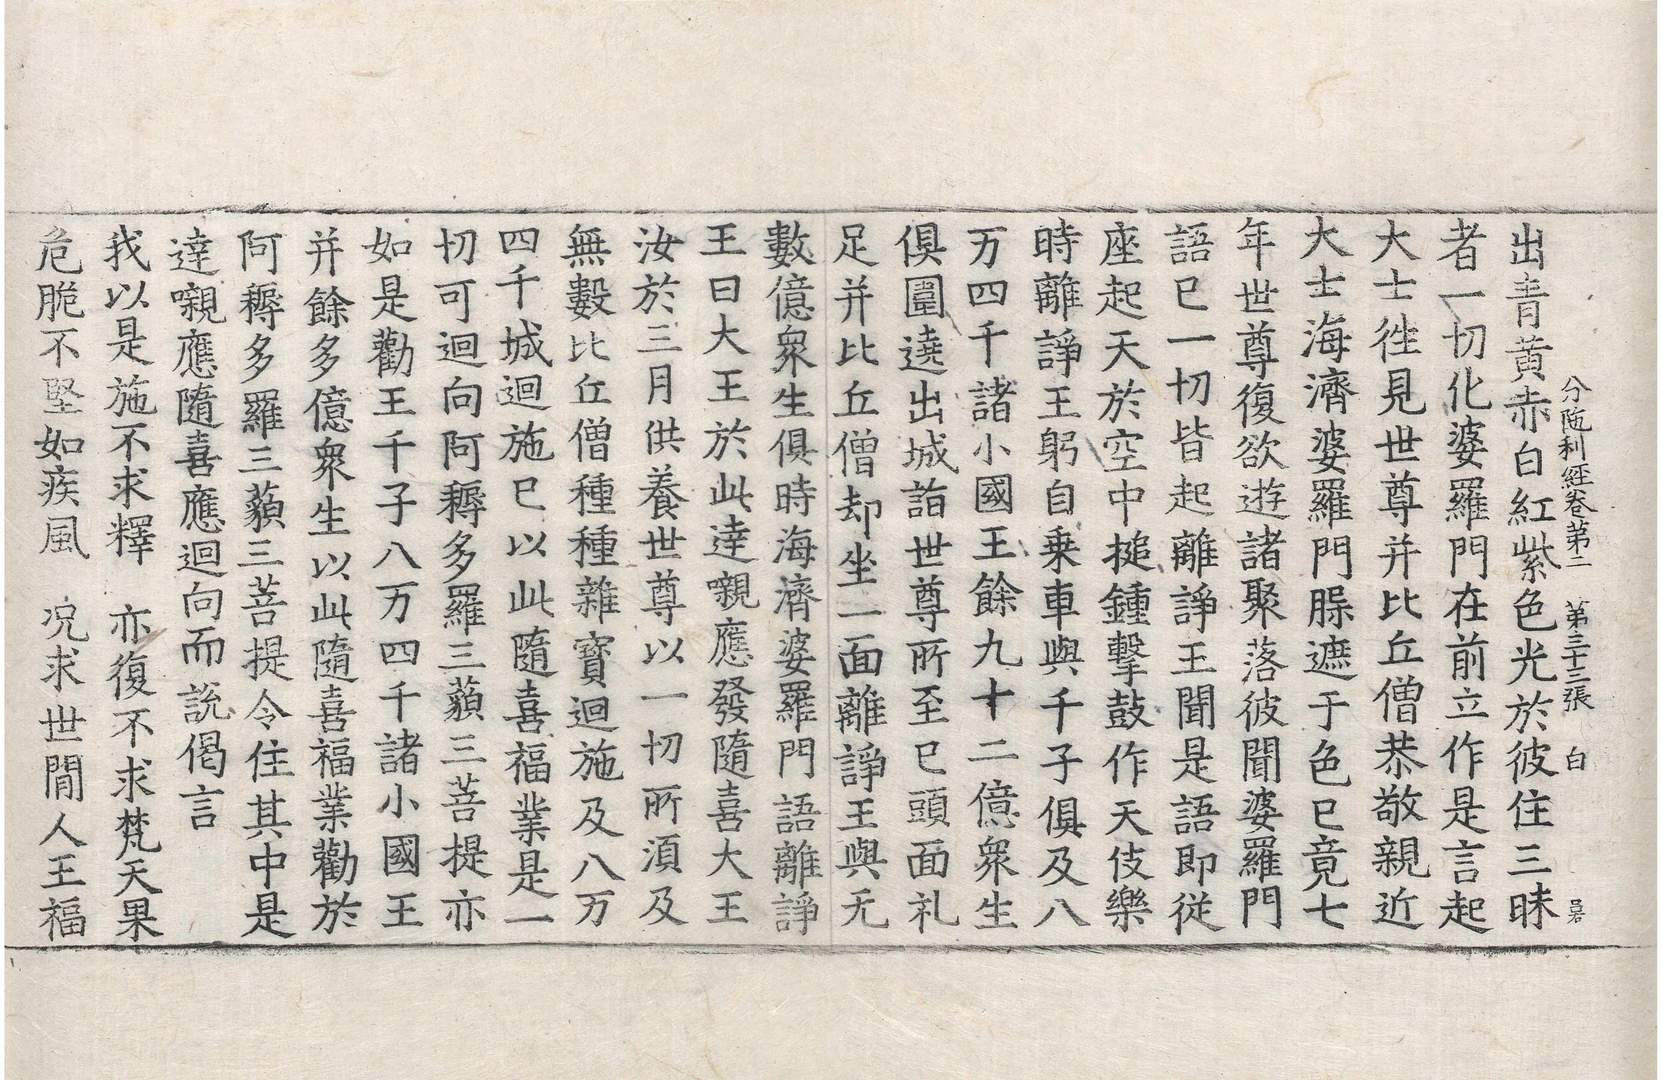 分陁利經卷第二　第三十三張　白
出青黃赤白紅紫色光於彼住三昧
者一切化婆羅門在前立作是言起
大士徃見世尊并比丘僧恭敬親近
大士海濟婆羅門䐗遮于色巳竟七
年世尊復欲遊諸聚落彼聞婆羅門
語巳一切皆起離諍王聞是語即從
座起天於空中搥鍾擊鼓作天伎樂
時離諍王躬自乗車與千子俱及八
万四千諸小國王餘九十二億衆生
俱圍遶出城詣世尊所至巳頭面礼
足并比丘僧却坐一面離諍王與无
數億衆生俱時海濟婆羅門 語離諍
王曰大王於此達嚫應發隨喜大王
汝於三月供養世尊以一切所湏及
無數比丘僧種種雜寳迴施及八万
四千城迴施巳以此隨喜福業是一
切可迴向阿耨多羅三藐三菩提亦
如是勸王千子八万四千諸小國王
并餘多億衆生以此隨喜福業勸於
阿耨多羅三藐三菩提令住其中是
達嚫應隨喜應迴向而說偈言
我以是施不求釋　亦復不求梵天果
危脆不堅如疾風　况求世間人王福